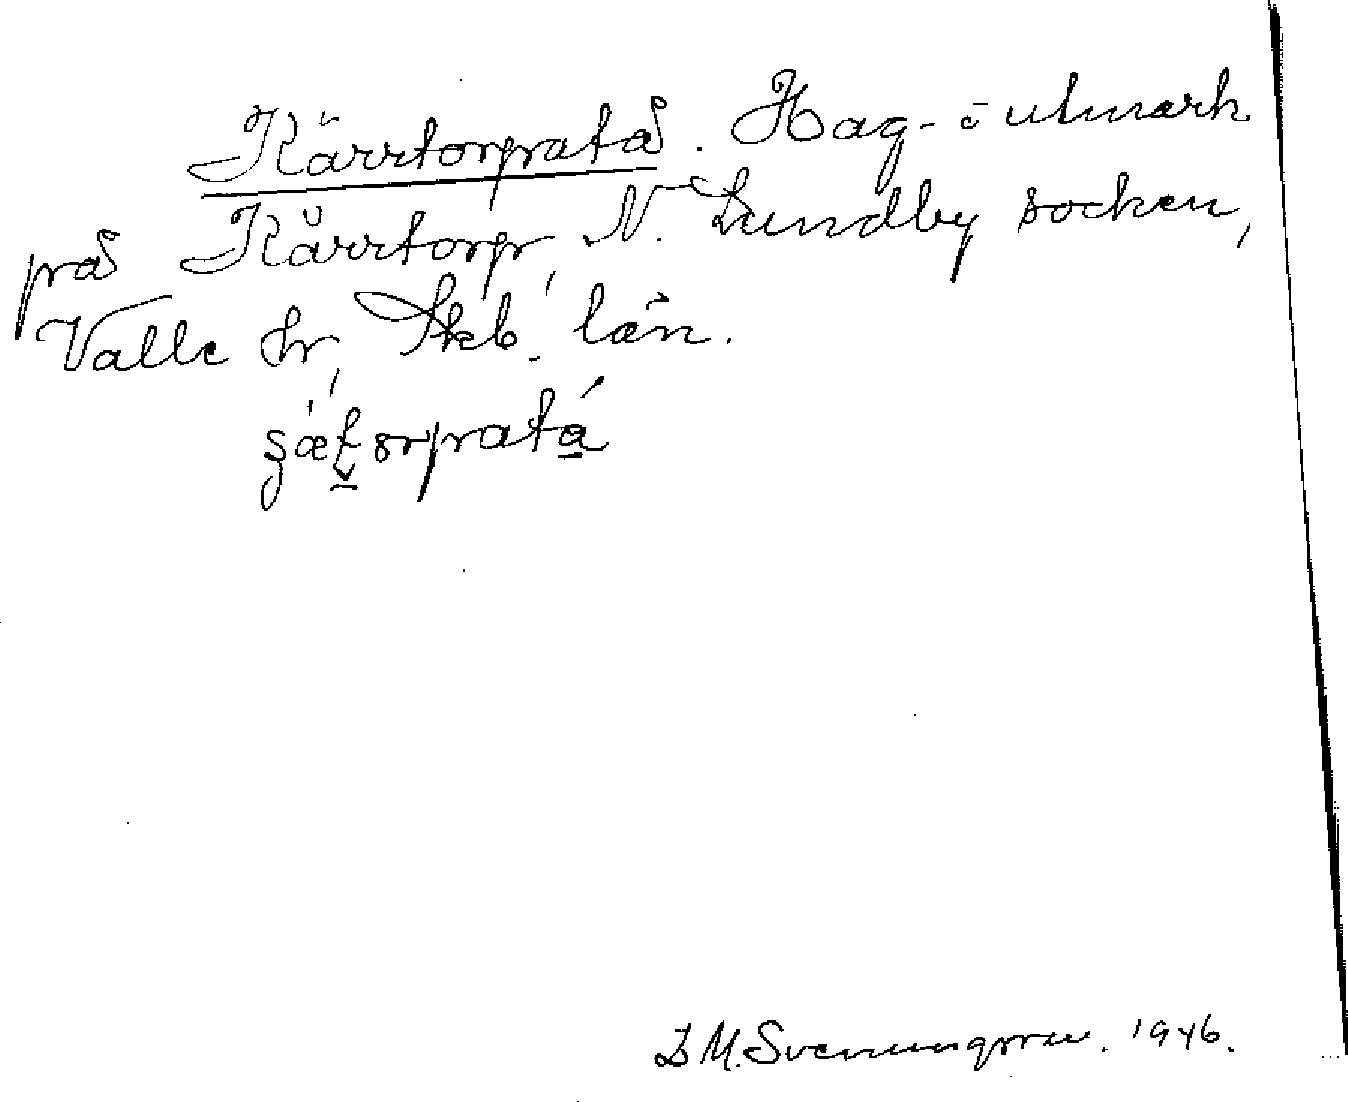 Kärrtorpratå. Hag- o utmark
på Kärrtorp, N. Lundby socken,
Valle hr, Skb. län.
D M. Svenungsson. 1946.